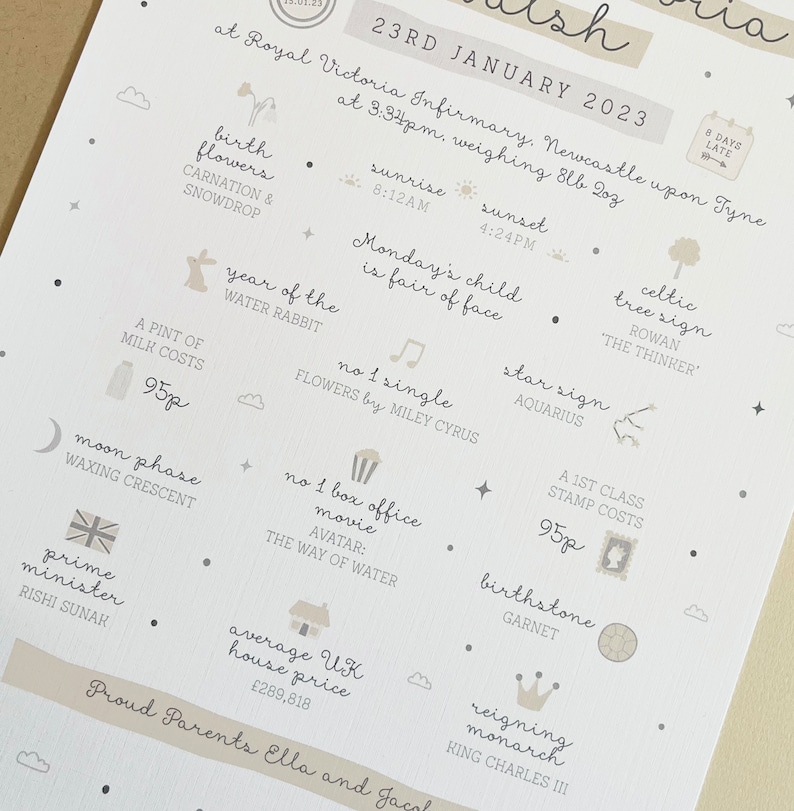 15.01.23
23RD JANUARY 2023
at Royal Victoria Infirmary, Newcastle upon Tyne
at 3:34pm, weighing 8lb 2oz
8 DAYS
LATE
birth
flowers
CARNATION &
SNOWDROP
sunrise
8:12AM
sunset
4:24PM
Monday's child
is fair of face
celtic
tree sign
ROWAN
'THE THINKER'
year of the
WATER RABBIT
A PINT OF
MILK COSTS
95p
no 1 single
FLOWERS by MILEY CYRUS
star sign
AQUARIUS
moon phase
WAXING CRESCENT
no 1 box office
movie
AVATAR:
THE WAY OF WATER
A 1ST CLASS
STAMP COSTS
95p
prime
minister
RISHI SUNAK
birthstone
GARNET
average UK
house price
£289,818
reigning
monarch
KING CHARLES III
Proud Parents Ella and Jacob